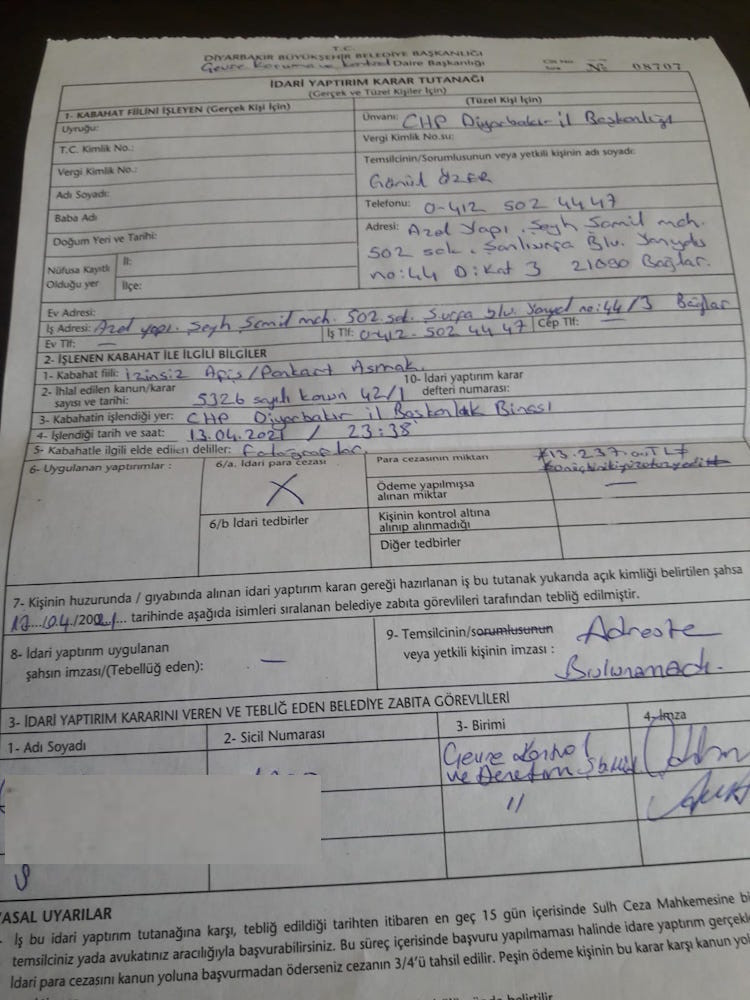 T.C.
DİYARBAKIR BÜYÜKŞEHİR BELEDİYE BAŞKANLIĞI
Çevre Koruma ve Kontrol Daire Başkanlığı
Cilt No:
Sıra № 08707
İDARİ YAPTIRIM KARAR TUTANAĞI
(Gerçek ve Tüzel Kişiler İçin)
1- KABAHAT FİİLİNİ İŞLEYEN (Gerçek Kişi İçin)
Uyruğu:
T.C. Kimlik No.:
Vergi Kimlik No.:
Adı Soyadı:
Baba Adı
Doğum Yeri ve Tarihi:
Nüfusa Kayıtlı Olduğu yer
İl:
İlçe:
(Tüzel Kişi İçin)
Ünvanı: CHP Diyarbakır il Başkanlığı
Vergi Kimlik No.su:
Temsilcinin/Sorumlusunun veya yetkili kişinin adı soyadı:
Gönül ÖZER
Telefonu: 0-412 502 44 47
Adresi: Azel Yapı. Şeyh Şamil mah.
502 sok. Şanlıurfa Blv. Yanyolu
no:44 D:Kat 3 21090 Bağlar.
Ev Adresi:
İş Adresi: Azel yapı. Şeyh Şamil mah. 502 sok. Ş.urfa blv. Yanyol no:44/3 Bağlar
Ev Tlf: — İş Tlf: 0-412-502 44 47 Cep Tlf: —
2- İŞLENEN KABAHAT İLE İLGİLİ BİLGİLER
1- Kabahat fiili: İzinsiz Afiş/Pankart Asmak.
2- İhlal edilen kanun/karar sayısı ve tarihi: 5326 sayılı kanun 42/1
10- İdari yaptırım karar defteri numarası:
3- Kabahatin işlendiği yer: CHP Diyarbakır il Başkanlık Binası
4- İşlendiği tarih ve saat: 13.04.2021 / 23:38
5- Kabahatle ilgili elde edilen deliller: Fotoğraflar.
6- Uygulanan yaptırımlar :
6/a. İdari para cezası
X
6/b İdari tedbirler
Para cezasının miktarı #13.237.00TL#
Ödeme yapılmışsa alınan miktar —
Kişinin kontrol altına alınıp alınmadığı
Diğer tedbirler
7- Kişinin huzurunda / gıyabında alınan idari yaptırım kararı gereği hazırlanan iş bu tutanak yukarıda açık kimliği belirtilen şahsa
tarihinde aşağıda isimleri sıralanan belediye zabıta görevlileri tarafından tebliğ edilmiştir.
8- İdari yaptırım uygulanan
şahsın imzası/(Tebellüğ eden): —
9- Temsilcinin/sorumlusunun
veya yetkili kişinin imzası :
Adreste
Bulunamadı.
3- İDARİ YAPTIRIM KARARINI VEREN VE TEBLİĞ EDEN BELEDİYE ZABITA GÖREVLİLERİ
1- Adı Soyadı 2- Sicil Numarası 3- Birimi 4- İmza
Çevre Kontrol
ve Denetim
"
YASAL UYARILAR
İş bu idari yaptırım tutanağına karşı, tebliğ edildiği tarihten itibaren en geç 15 gün içerisinde Sulh Ceza Mahkemesine
temsilciniz yada avukatınız aracılığıyla başvurabilirsiniz. Bu süreç içerisinde başvuru yapılmaması halinde idare yaptırım
İdari para cezasını kanun yoluna başvurmadan öderseniz cezanın 3/4'ü tahsil edilir. Peşin ödeme kişinin bu karar karşı kanun